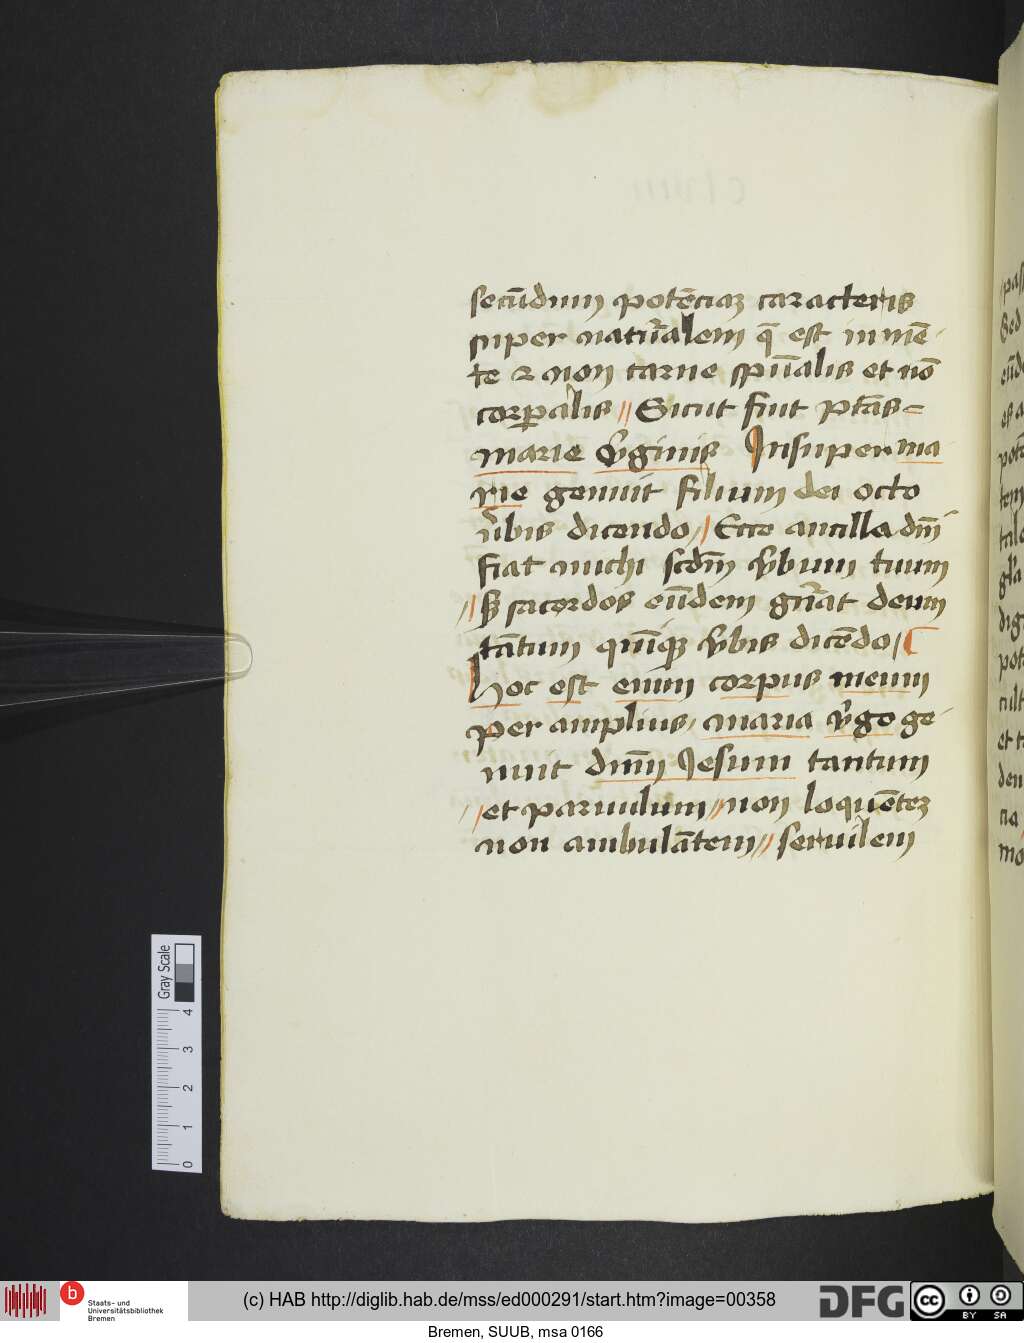 secūdum potēciaz caracteris
super natūralem q̄ est in mē-
te et non carne spūalis et nō
corꝑalis // Sicut fuit ptās-
marie v̄ginis Insuper ma
rie genuit filium dei octo
v̄bis dicendo / Ecce ancilla dnī
fiat michi scdm̄ v̄bum tuum
// Sꝫ sacerdos eūdem gn̄rat deum
tātum quīqꝫ v̄bis dicēdo /
Hoc est enim corpus meum
Per amplius / maria v̄go ge-
nuit dnm̄ Jesum tantum
/ et paruulum // non loquētez
non ambulātem // seruilem
Gray Scale
0 1 2 3 4
b Staats- und
Universitätsbibliothek
Bremen
(c) HAB http://diglib.hab.de/mss/ed000291/start.htm?image=00358
DFG
cc BY SA
Bremen, SUUB, msa 0166